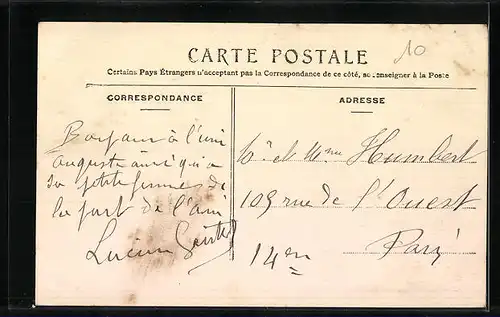 10
CARTE POSTALE
Certains Pays Étrangers n'acceptant pas la Correspondance de ce côté, se renseigner à la Poste
CORRESPONDANCE
ADRESSE
Bonjour à l'ami
auguste ainsi qu'a
sa petite femme de
la part de l'ami
Lucien
Mr et Mme Humbert
109 rue de l'Ouest
Paris
14em